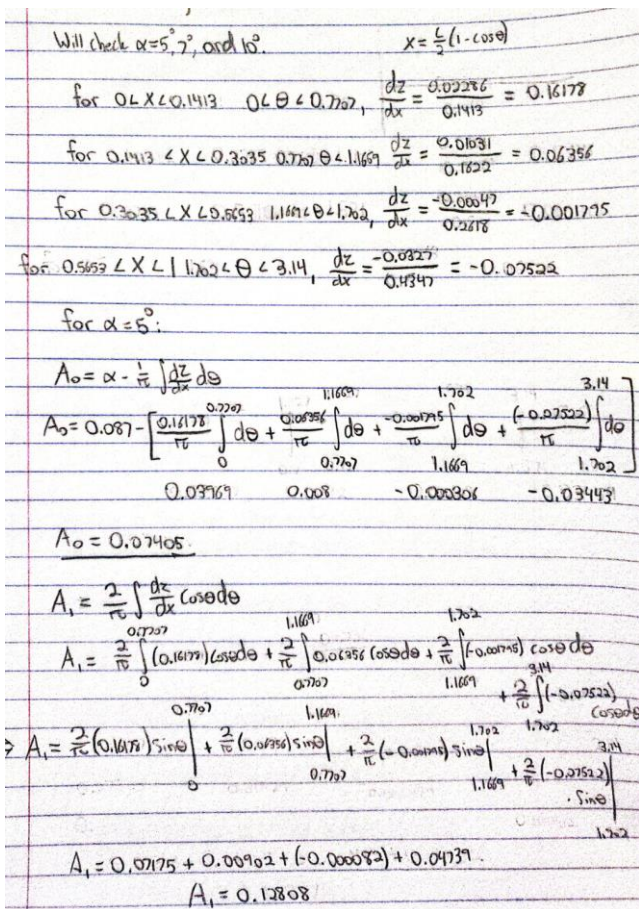 Will check α=5°, 7°, and 10°. X = L/2 (1-cosθ)
for 0<X<0.1413 0<θ<0.7707, dz/dx = 0.02286/0.1413 = 0.16178
for 0.1413<X<0.3035 0.7707<θ<1.1669 dz/dx = 0.01031/0.1622 = 0.06356
for 0.3035<X<0.5653 1.1669<θ<1.702, dz/dx = -0.00047/0.2618 = -0.001795
for 0.5653<X<1 1.702<θ<3.14, dz/dx = -0.0327/0.4347 = -0.07522
for α=5°:
A₀ = α - 1/π ∫ dz/dx dθ
A₀ = 0.087 - [ 0.16178/π ∫₀^0.7707 dθ + 0.06356/π ∫_0.7707^1.1669 dθ + -0.001795/π ∫_1.1669^1.702 dθ + (-0.07522)/π ∫_1.702^3.14 dθ ]
0.03969 0.008 -0.000306 -0.03443
A₀ = 0.07405
A₁ = 2/π ∫ dz/dx cosθdθ
A₁ = 2/π ∫₀^0.7707 (0.16178) cosθdθ + 2/π ∫_0.7707^1.1669 0.06356 cosθdθ + 2/π ∫_1.1669^1.702 (-0.001795) cosθdθ
+ 2/π ∫_1.702^3.14 (-0.07522) cosθdθ
→ A₁ = 2/π (0.16178) sinθ |₀^0.7707 + 2/π (0.06356) sinθ |_0.7707^1.1669 + 2/π (-0.001795) sinθ |_1.1669^1.702 + 2/π (-0.07522)
· sinθ |_1.702^3.14
A₁ = 0.07175 + 0.00902 + (-0.000082) + 0.04739
A₁ = 0.12808